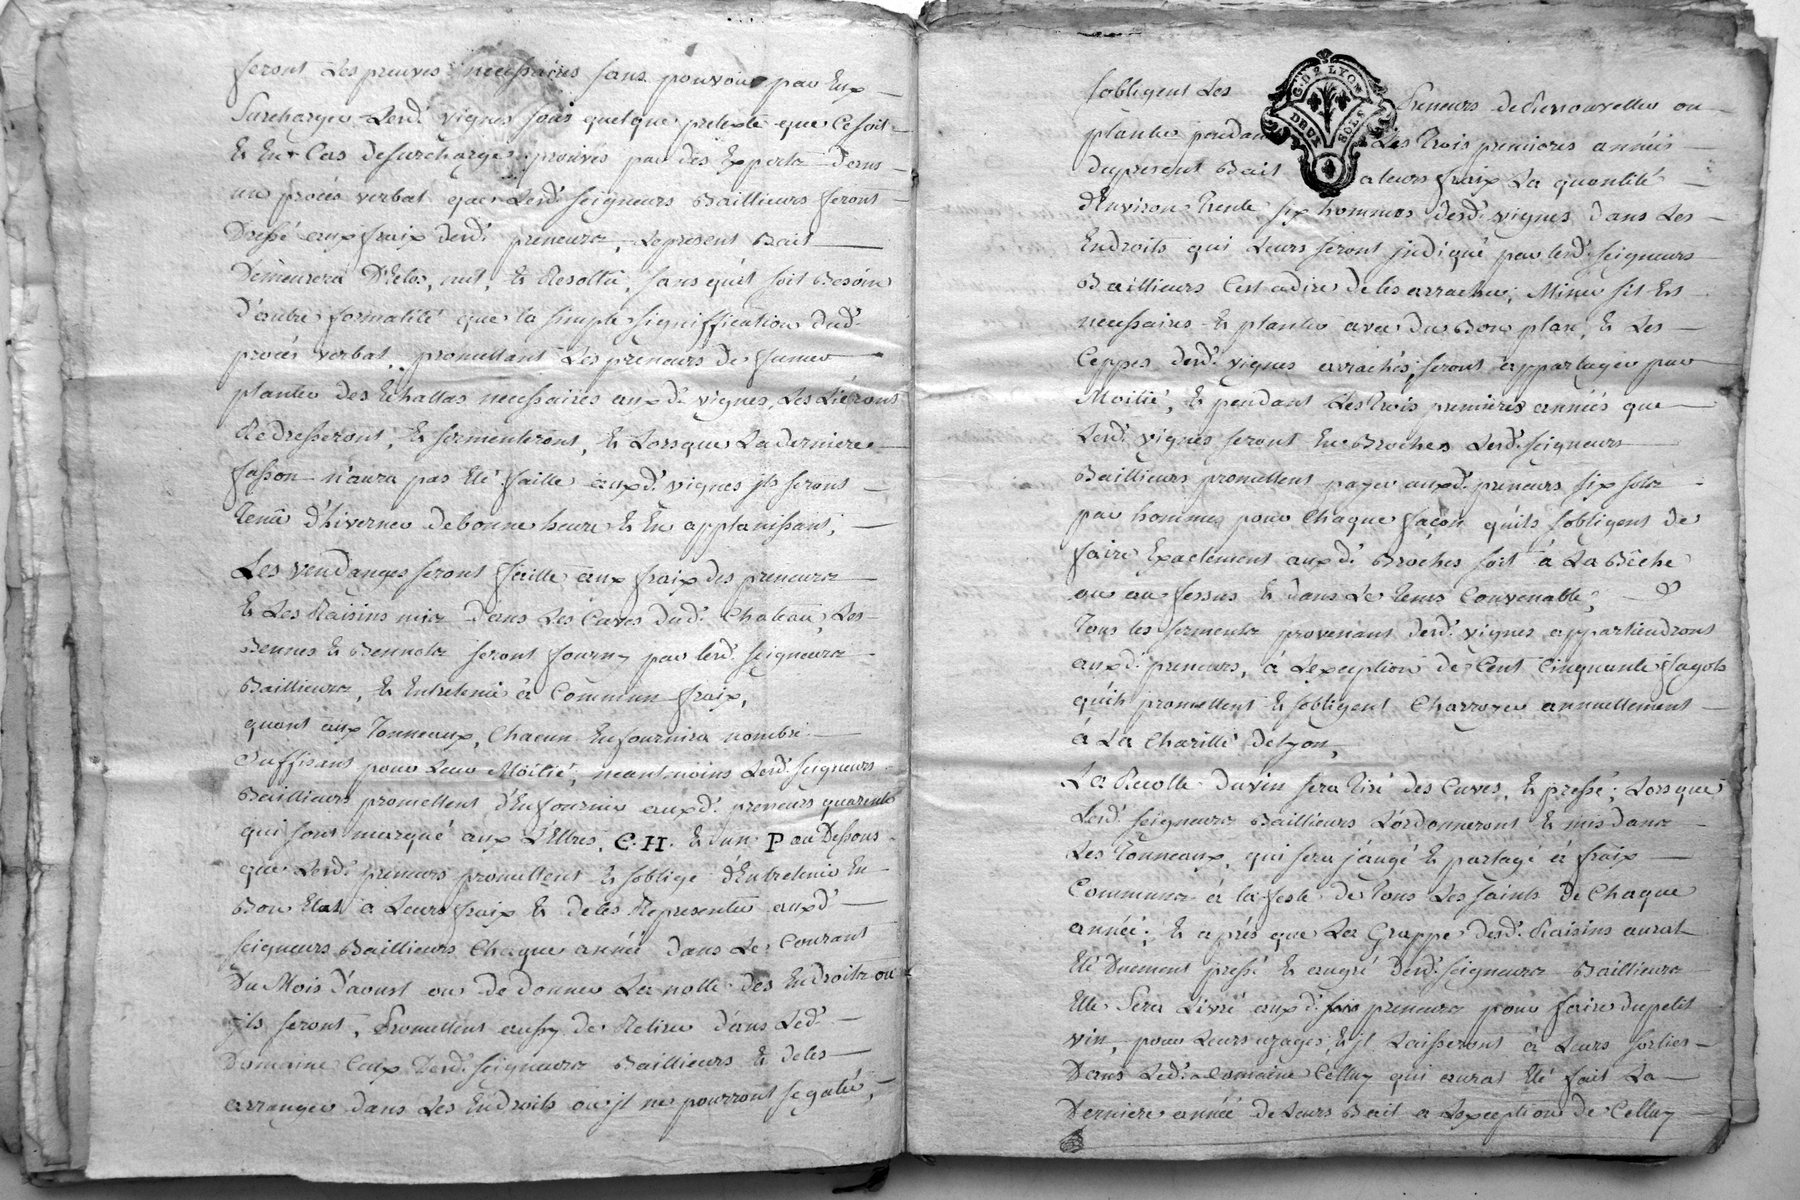 seront les preuves necessaires sans pouvoir par Eux
Surcharger lesd. vignes sous quelque pretexte que Cesoit
Et En Cas desurcharge prouvés par des Experts dans
un procés verbal que lesd. seigneurs Baillieurs feront
Dressé aux fraix desd. preneurs, Lepresent Bail
Demeurera D'Eslor, nul, Et Resollu, sans qu'il soit Besoin
D'autre formalité que la simple signiffication dud.
procés verbal, promettant Les preneurs de fumer
planter des Echallas necessaires auxd. vignes, Les Liéront
Redresseront, Et sermenteront, Et Lorsque La derniere
fasson n'aura pas Eté faille auxd. vignes jls seront
Tenû d'hiverner debonne heure Et En applanissant,
Les vendanges seront faille aux fraix des preneurs
Et Les Raisins mis dans Les Cuves dud. Chateau, Les
Bennes Et Bennots seront fourny par lesd. seigneurs
Baillieurs, Et Entretenû à Commun fraix,
quant aux Tonneaux, Chacun Enfournira nombre
Suffisant pour Leur Moitié, neantmoins Lesd. seigneurs
Baillieurs promettent d'Enfournir auxd. preneurs quarente
qui sont marqué aux L'Ettres, C.H. Et d'un P au Dessous
que Lesd. preneurs promettent Et soblige d'Entretenir En
Bon Etat a Leurs fraix Et deles Representer auxd.
seigneurs Baillieurs Chaque année dans Le Courant
Du Mois d'aoust ou de donner La notte des Endroits ou
jls seront, Promettent aussy de Retirer dans Led.
Domaine Ceux desd. seigneurs Baillieurs Et deles
arranger dans Les Endroits ou jl ne pourront segater,
G. DE LYON
DEUX SOLS
sobligent Les Preneurs de Renouveller ou
planter pendant Les Trois premiores années
dupresent Bail a leurs fraix La quantité
d'Environ Trente six hommes desd. vignes dans Les
Endroits qui Leurs seront jndiqué par lesd. seigneurs
Baillieurs Cest adire deles arracher, Miner sil Est
necessaire Et planter avec du Bon plan, Et Les
Ceppes desd. vignes arrachés, seront appartager par
Moitié, Et pendant Les Trois premieres années que
Lesd. vignes seront En Broches Lesd. seigneurs
Baillieurs promettent payer auxd. preneurs six sols
par hommes pour Chaque façon qu'ils sobligent de
faire Exactement auxd. Broches soit à La Bêche
ou au fessus Et dans Le Tems Convenable,
Tous les serments provenant desd. vignes appartiendront
auxd. preneurs, à Lexception de Cent Cinquante fagots
qu'ils promettent Et sobligent Charroyer annuellement
à La Charitté delyon,
La Recolte du vin sera Tiré des Cuves, Et pressé, Lorsque
Lesd. seigneurs Baillieurs L'ordonneront Et mis dans
Les Tonneaux, qui sera jaugé Et partagé à fraix
Communs à la feste de Tous Les saints de Chaque
année, Et aprés que La Grappe desd. Raisins aurat
Eté Duement pressé Et augré desd. seigneurs Baillieurs
Elle sera Livré auxd. preneurs pour faire dupetit
vin, pour Leurs uzages, Et jl Laisseront à Leurs sorties
Dans Led. Domaine Celluy qui aurat Eté fait La
Derniere année de Leurs Bail a Lexception de Celluy